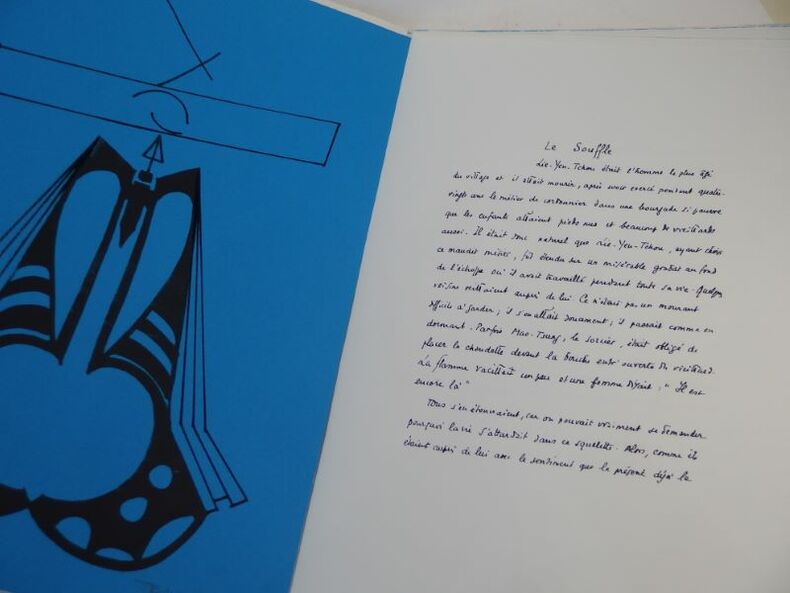 Le Souffle
Lie-Yen-Tchou était l'homme le plus âgé
du village et il allait mourir, après avoir exercé pendant quatre-
vingts ans le métier de cordonnier dans une bourgade si pauvre
que les enfants allaient pieds nus et beaucoup de vieillards
aussi. Il était donc naturel que Lie-Yen-Tchou, ayant choisi
ce maudit métier, fût étendu sur un misérable grabat au fond
de l'échoppe où il avait travaillé pendant toute sa vie. Quelques
voisins veillaient auprès de lui. Ce n'était pas un mourant
difficile à garder; il s'en allait doucement; il passait comme en
dormant. Parfois Mao-Tseng, le sorcier, était obligé de
placer la chandelle devant la bouche entr'ouverte du vieillard.
La flamme vacillait un peu et une femme disait: "Il est
encore là"
Tous s'en étonnaient, car on pouvait vraiment se demander
pourquoi la vie s'attardait dans ce squelette. Alors, comme ils
étaient auprès de lui avec le sentiment que le présent déjà le